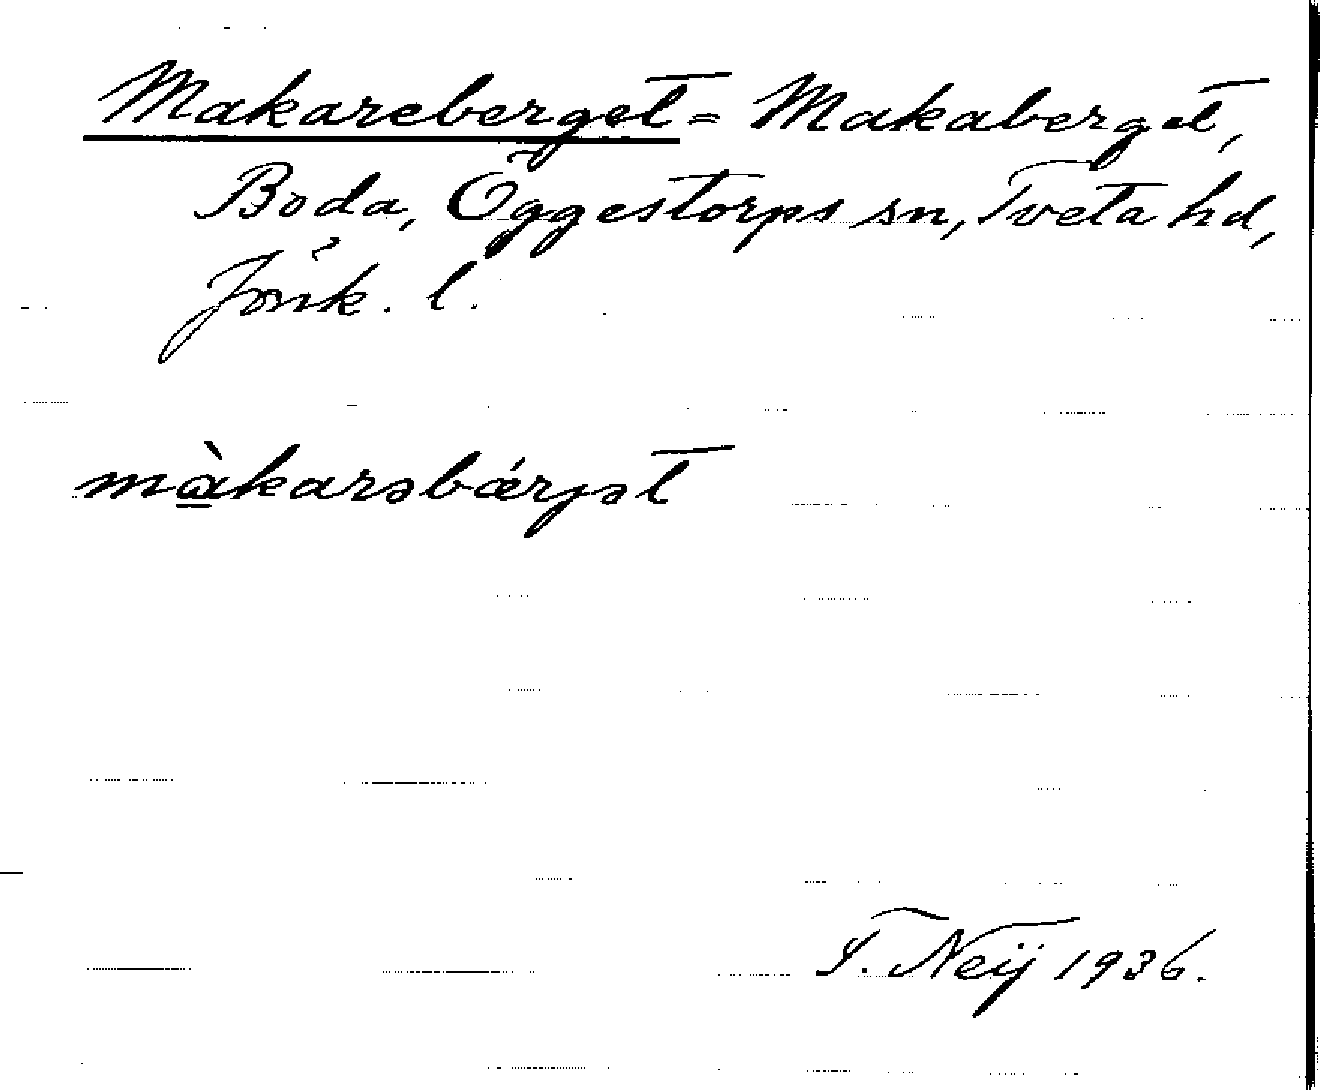 Makareberget = Makaberget,
Boda, Öggestorps sn, Tveta hd,
Jönk. l.
màkarəbǽrjət
T. Neij 1936.